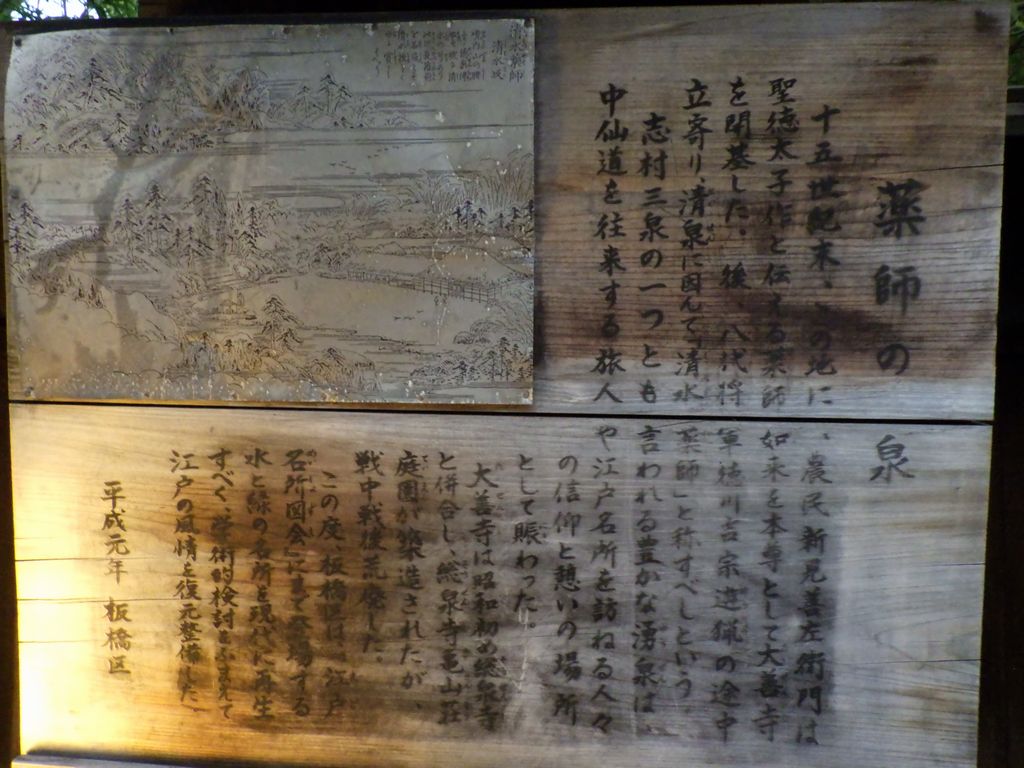 薬師の泉
十五世紀末、この地に、農民新見善左衛門は
聖徳太子作と伝える薬師如来を本尊として大善寺
を開基した。後、八代将軍徳川吉宗遊猟の途中
立寄り、清泉に因んで「清水薬師」と称すべしという。
志村三泉の一つとも言われる豊かな湧泉は、
中仙道を往来する旅人や江戸名所を訪ねる人々
の信仰と憩いの場所
として賑わった。
大善寺は昭和初め総泉寺
と併合し、総泉寺亀山荘
庭園が築造されたが、
戦中戦後荒廃した。
この度、板橋区は、江戸
名所図会』にまで登場する
水と緑の名所を現代に再生
すべく、学術的検討をふまえて
江戸の風情を復元整備した。
平成元年 板橋区
清水薬師
清水坂